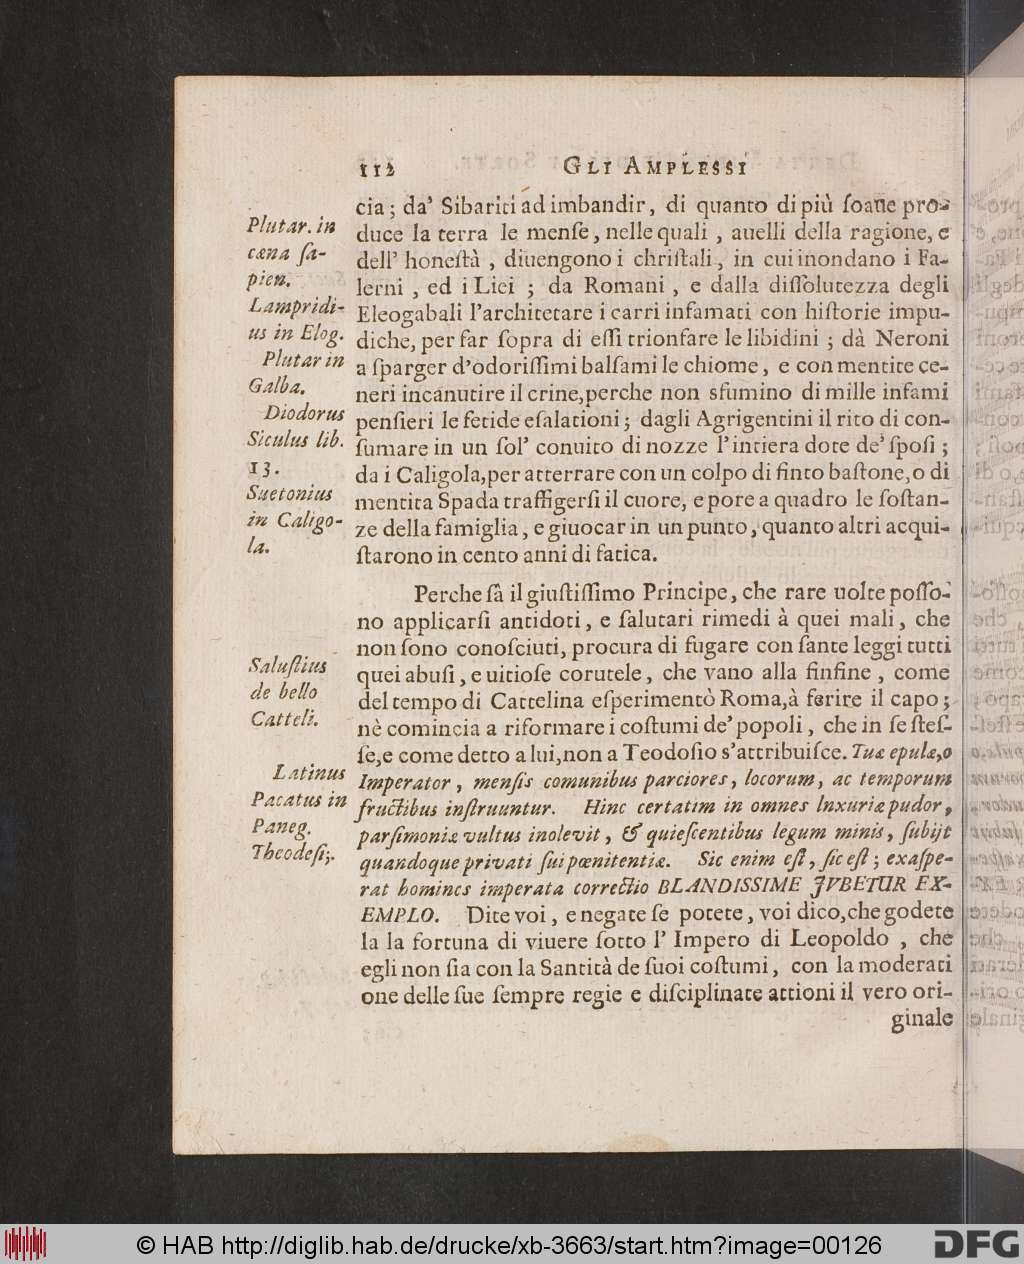 112 GLI AMPLESSI
cia; da' Sibariti ad imbandir, di quanto di più ſoaue pro-
duce la terra le menſe, nelle quali, auelli della ragione, e
dell' honeſtà, diuengono i chriſtali, in cui inondano i Fa-
lerni, ed i Liei; da Romani, e dalla diſſolutezza degli
Eleogabali l'architetare i carri infamati con hiſtorie impu-
diche, per far ſopra di eſſi trionfare le libidini; dà Neroni
a ſparger d'odoriſſimi balſami le chiome, e con mentite ce-
neri incanutire il crine, perche non sfumino di mille infami
penſieri le fetide eſalationi; dagli Agrigentini il rito di con-
ſumare in un ſol' conuito di nozze l'intiera dote de' ſpoſi;
da i Caligola, per atterrare con un colpo di finto baſtone, o di
mentita Spada traffigerſi il cuore, e pore a quadro le ſoſtan-
ze della famiglia, e giuocar in un punto, quanto altri acqui-
ſtarono in cento anni di fatica.
Plutar. in
cæna ſa-
pien.
Lampridi-
us in Elog.
Plutar in
Galba.
Diodorus
Siculus lib.
13.
Suetonius
in Caligo-
la.
Perche sà il giuſtiſſimo Principe, che rare uolte poſſo-
no applicarſi antidoti, e ſalutari rimedi à quei mali, che
non ſono conoſciuti, procura di fugare con ſante leggi tutti
quei abuſi, e uitioſe corutele, che vano alla finfine, come
del tempo di Cattelina eſperimentò Roma, à ferire il capo;
nè comincia a riformare i coſtumi de' popoli, che in ſe ſteſ-
ſe, e come detto a lui, non a Teodoſio s'attribuiſce. Tuæ epulæ, o
Imperator, menſis comunibus parciores, locorum, ac temporum
fructibus inſtruuntur. Hinc certatim in omnes lnxuriæ pudor,
parſimoniæ vultus inolevit, & quieſcentibus legum minis, ſubijt
quandoque privati ſui pœnitentiæ. Sic enim eſt, ſic eſt; exaſpe-
rat homines imperata correctio BLANDISSIME JVBETUR EX-
EMPLO. Dite voi, e negate ſe potete, voi dico, che godete
la la fortuna di viuere ſotto l' Impero di Leopoldo, che
egli non ſia con la Santità de ſuoi coſtumi, con la moderati
one delle ſue ſempre regie e diſciplinate attioni il vero ori-
ginale
Saluſtius
de bello
Catteli.
Latinus
Pacatus in
Paneg.
Theodeſij.
© HAB http://diglib.hab.de/drucke/xb-3663/start.htm?image=00126
DFG